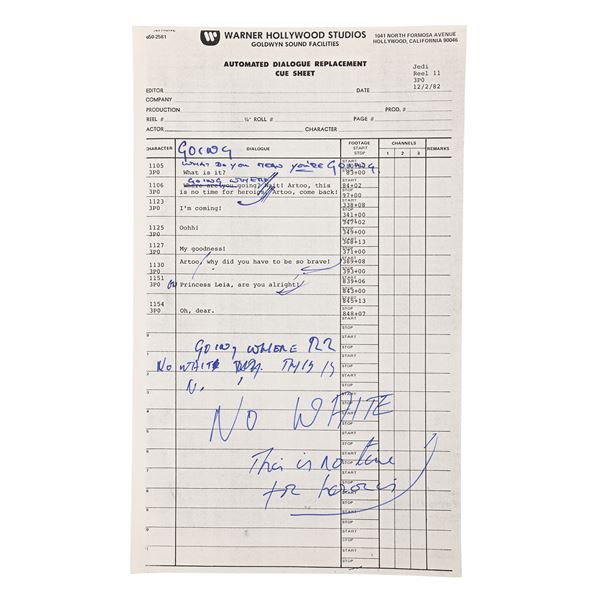 650-2561
WARNER HOLLYWOOD STUDIOS
GOLDWYN SOUND FACILITIES
1041 NORTH FORMOSA AVENUE
HOLLYWOOD, CALIFORNIA 90046
AUTOMATED DIALOGUE REPLACEMENT
CUE SHEET
Jedi
Reel 11
3PO
12/2/82
EDITOR DATE
COMPANY
PRODUCTION PROD. #
REEL # ¼" ROLL # PAGE #
ACTOR CHARACTER
CHARACTER DIALOGUE FOOTAGE START STOP CHANNELS 1 2 3 REMARKS
GOING
WHAT DO YOU MEAN YOU'RE GOING
1105
3PO What is it? 83+00
GOING WHERE
1106 Where are you going? Wait! Artoo, this 84+02
3PO is no time for heroics. Artoo, come back! 97+00
1123 338+08
3PO I'm coming! 341+00
1125 347+02
3PO Oohh! 349+00
1127 368+13
3PO My goodness! 371+00
1130 Artoo, why did you have to be so brave! 389+08
3PO 393+00
1151 839+06
3PO Princess Leia, are you alright! 843+00
1154 845+13
3PO Oh, dear. 848+07
START
STOP
GOING WHERE R2
NO WAIT THIS IS
N.
NO WAITE
This is no time
for heroics